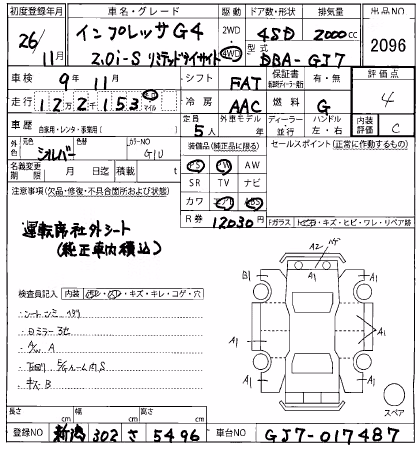 初度登録年月 車名・グレード 駆動 ドア数・形状 排気量 出品NO
26/11月 インプレッサG4 2WD 4WD 4SD 2000cc 2096
2.0i-S リミテッドアイサイト 型式 DBA-GJ7
車検 9年11月 シフト FAT 保証書 有・無 評価点 4
走行 12万2千153 キロ マイル 冷房 AAC 燃料 G 内装 C
車歴 自家用・レンタ・事業用( ) 定員 5人 外車モデル 年 ディーラー 並行 ハンドル 左・右
外色 元色 シルバー 色替 カラーNO G1U 装備品(純正品に限る) セールスポイント(正常に動作するもの)
名義変更期限 月 日迄 積載 t PS PW AW
SR TV ナビ
カワ エアB ABS
注意事項(欠品・修復・不具合箇所および状態) R券 12030円
運転席社外シート
(純正車内積込)
Fガラス トビ石・キズ・ヒビ・ワレ・リペア跡
A2
A1
B1 A1
A1 A1
A1 A1
検査員記入 内装 ヨゴレ・スレ・キズ・キレ・コゲ・穴
・シートシミ ヘタリ
・ロミラー 3化
・A/W A
・下回り E/Gルーム内S
・キズ B
スペア
長さ cm 幅 cm 高さ cm
登録NO 新潟 302 さ 5496 車台NO GJ7-017487